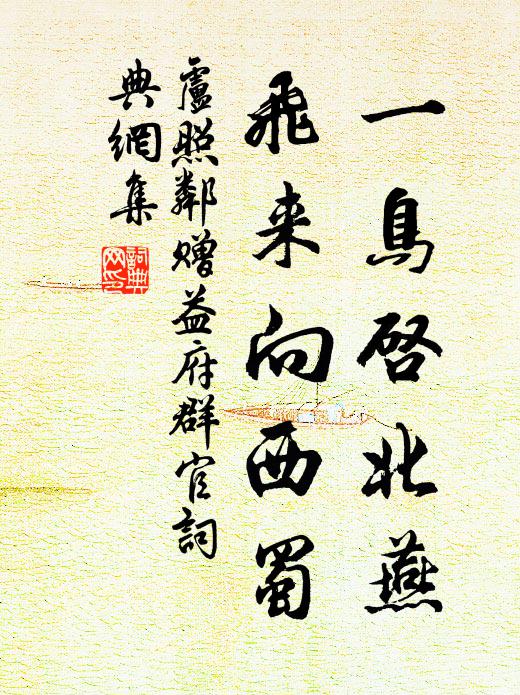 一鳥啓北燕
飛来向西蜀
盧照鄰贈益府群官詞
典網集
詞典
网印